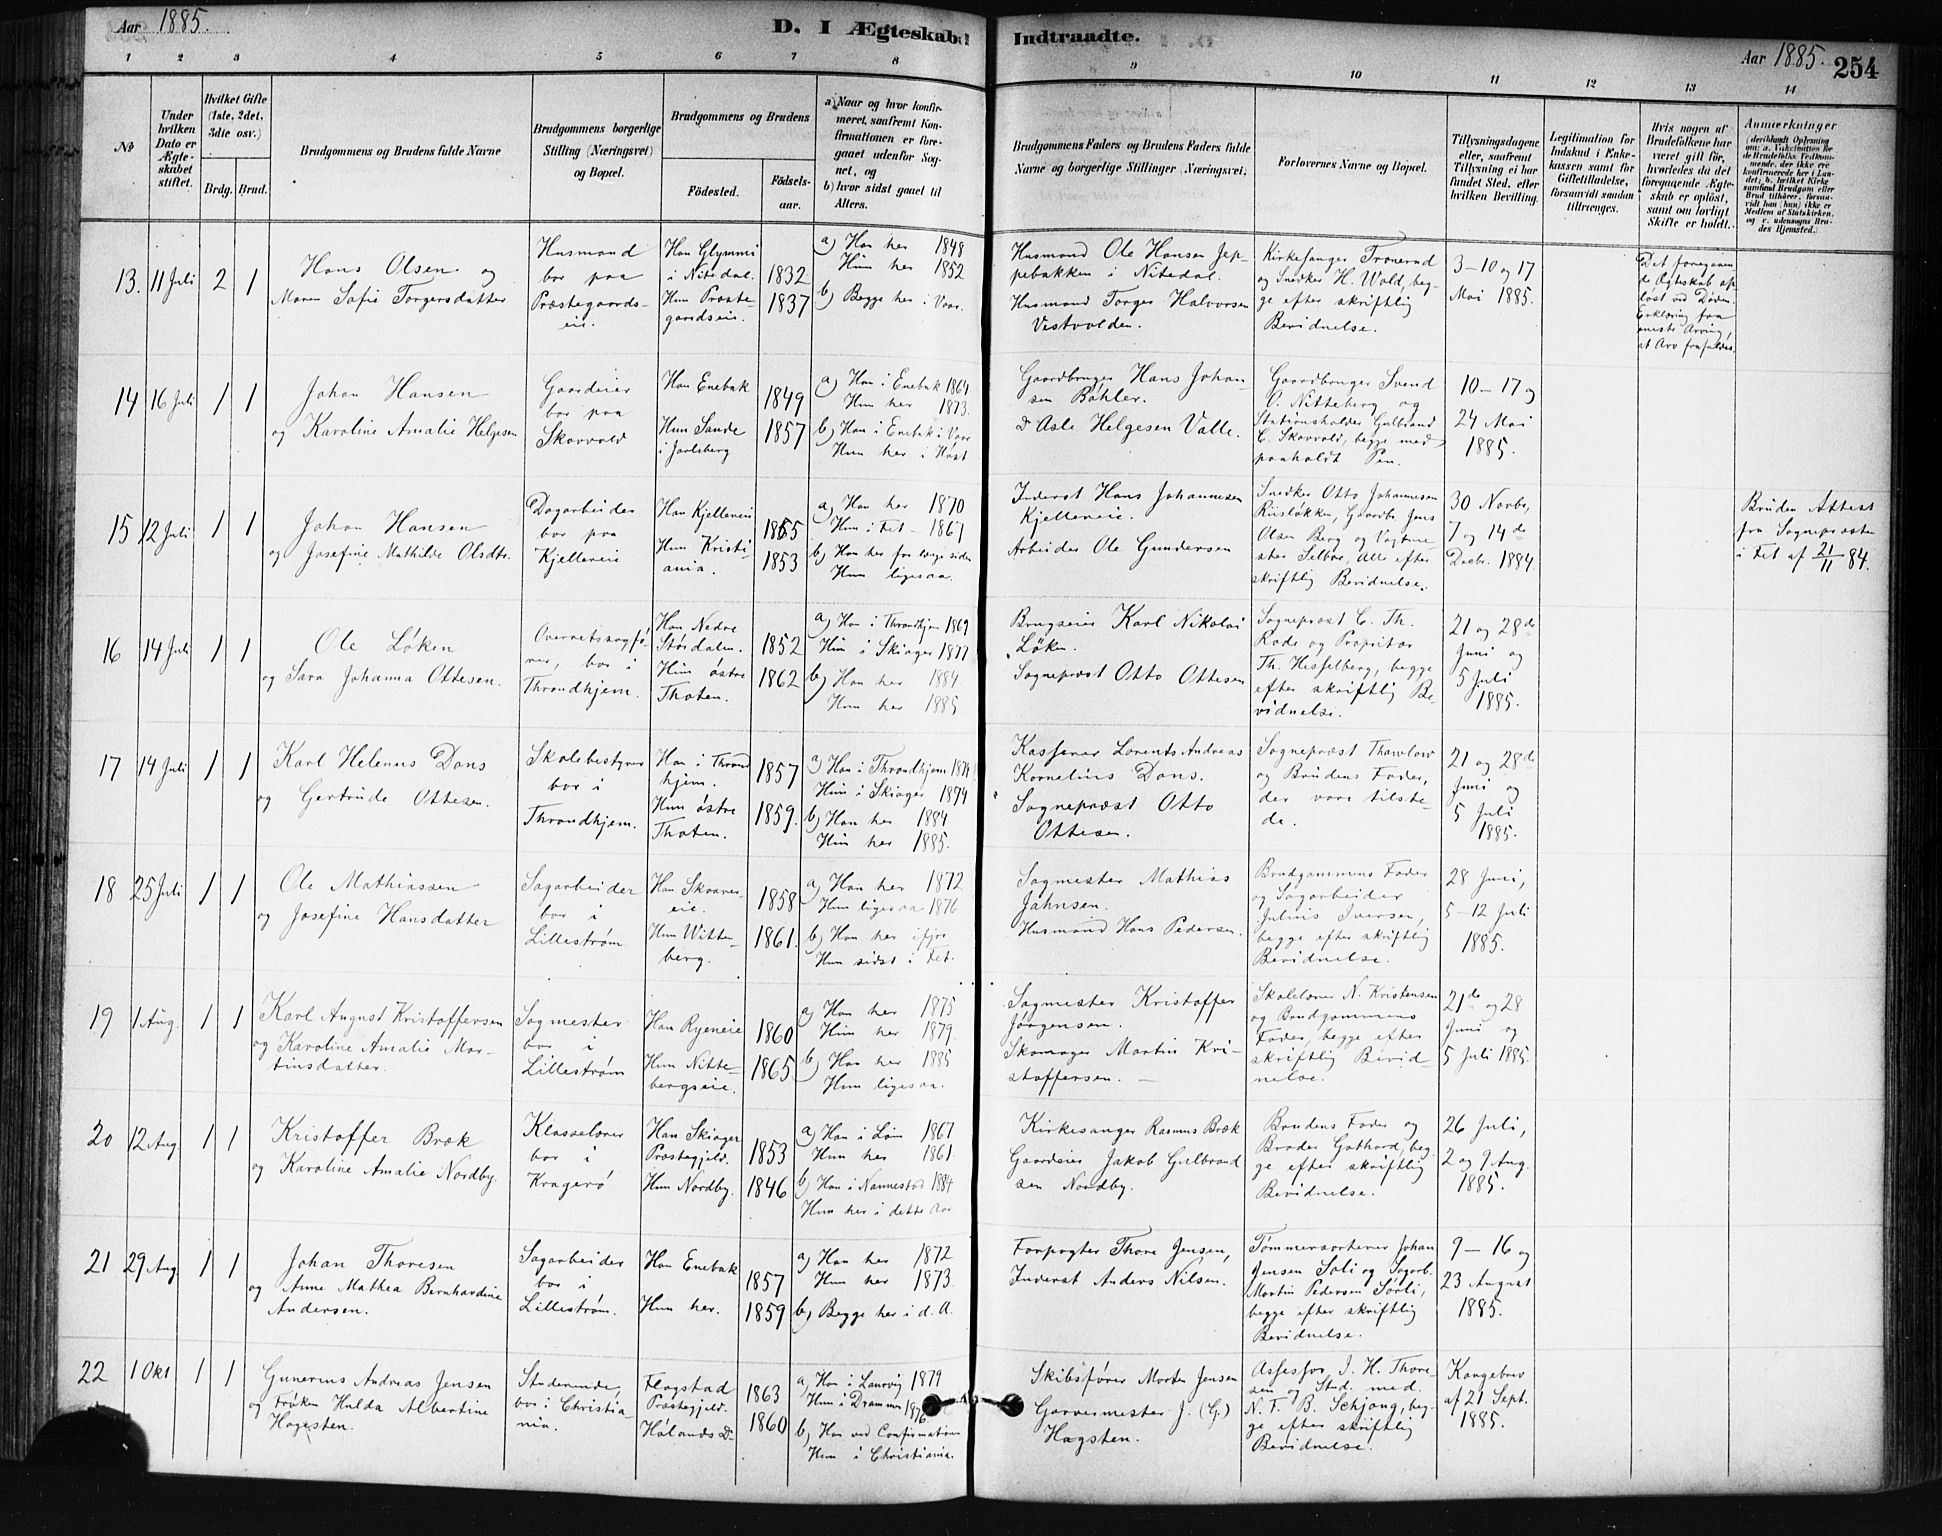 Aar 1885.
D. I Ægteskab
Indtraadte.
Aar 1885.
254
1 2 3 4 5 6 7 8 9 10 11 12 13 14
№
Under hvilken Dato er Ægteskabet stiftet.
Hvilket Gifte (1ste, 2det, 3die osv.)
Brdg. Brud.
Brudgommens og Brudens fulde Navne
Brudgommens borgerlige Stilling (Næringsvei) og Bopæl.
Brudgommens og Brudens
Fødested.
Fødselsaar.
a) Naar og hvor konfirmeret, saafremt Konfirmationen er foregaaet udenfor Sognet, og
b) hvor sidst gaaet til Alters.
Brudgommens Faders og Brudens Faders fulde Navne og borgerlige Stillinger (Næringsvei).
Forlovernes Navne og Bopæl.
Tillysningsdagene eller, saafremt Tillysning ei har fundet Sted, efter hvilken Bevilling.
Legitimation for Indskud i Enkekassen samt for Giftetilladelse, forsaavidt saadan tiltrænges.
Hvis nogen af Brudefolkene har været gift før, hvorledes da det foregaaende Ægteskab er opløst, samt om lovligt Skifte er holdt.
Anmærkninger
13. 11 Juli 2 1
Hans Olsen og
Maren Sofie Torgersdatter
Husmand
bor paa
Præstegaards-
eie.
Han Glymmi
i Nitedal
Hun Præste-
gaardseie.
1832
1837
a) Han her 1848
Hun her 1852
b) Begge her i Vaar.
Husmand Ole Hansen Jep-
pebakken i Nitedal.
Husmand Torger Halvorsen
Vestvolden.
Kirkesanger Tronerud
og Snedker H. Wold, beg-
ge efter skriftlig
Bevidnelse.
3-10 og 17
Mai 1885.
Det foregaaen-
de Ægteskab op-
løst ved Døden.
Erklæring fra
eneste Arving,
at Arv frafaldes.
14 16 Juli 1 1
Johan Hansen
og Karoline Amalie Helgesen
Gaardeier
bor paa
Skovvald
Han Enebak
Hun Sande
i Jarlsberg
1849
1857
a) Han i Enebak 1864
Hun her 1873.
b) Han i Enebak i Vaar
Hun her i Høst
Gaardbruger Hans Johan-
sen Bøhler.
Do Asle Helgesen Valle.
Gaardbruger Svend
O. Nitteberg og
Stationsholder Gulbrand
C. Skovvald, begge med
paaholdt Pen.
10-17 og
24 Mai
1885.
15 12 Juli 1 1
Johan Hansen
og Josefine Mathilde Olsdtr.
Dagarbeider
bor paa
Kjellereie
Han Kjellereie
Hun Kristi-
ania.
1855
1853
a) Han her 1870
Hun i Fet - 1867
b) Han her for længe siden
Hun ligesaa.
Inderst Hans Johannesen
Kjellereie.
Arbeider Ole Gundersen
Snedker Otto Johannesen
Riisløkken, Gaardbr. Jens
Olsen Berg og Vogtme-
ster Selboe, Alle efter
skriftlig Bevidnelse.
30 Novbr,
7 og 14de
Decbr. 1884
Bruden Attest
fra Sognepræsten
i Fet af 21/11 84.
16 14 Juli 1 1
Ole Løken
og Sara Johanna Ottesen.
Overretssagfø-
rer, bor i
Throndhjem.
Han Nedre
Størdalen.
Hun østre
Thoten.
1852
1862
a) Han i Throndhjem 1869
Hun i Skiager 1877
b) Han her 1884
Hun her 1885.
Brugseier Karl Nikolai
Løken.
Sognepræst Otto Ottesen
Sognepræst C. Th.
Rode og Propritær
Th. Hesselberg, begge
efter skriftlig Be-
vidnelse.
21 og 28de
Juni og
5 Juli
1885.
17 14 Juli 1 1
Karl Helenus Dons
og Gertrude Ottesen.
Skolebestyrer
bor i
Throndhjem.
Han i Thrond
hjem.
Hun østre
Thoten.
1857
1859.
a) Han i Throndhjem 1874
Hun i Skiager 1874
b) Han her 1884
Hun her 1885.
Kasserer Lorents Andreas
Kornelius Dons.
Sognepræst Otto
Ottesen.
Sognepræst Thawlow
og Brudens Fader,
der vare tilste-
de.
21 og 28de
Juni og
5 Juli
1885.
18 25 Juli 1 1
Ole Mathiassen
og Josefine Hansdatter
Sagarbeider
bor i
Lillestrøm
Han Skaarer-
eie.
Hun Witten-
berg.
1858
1861.
a) Han her 1872
Hun ligesaa 1876
b) Han her ifjor
Hun sidst i Fet.
Sagmester Mathias
Jahnsen.
Husmand Hans Pedersen.
Brudgommens Fader
og Sagarbeider
Julius Iversen,
begge efter skriftlig
Bevidnelse.
28 Juni,
5-12 Juli
1885.
19 1 Aug. 1 1
Karl August Kristoffersen
og Karoline Amalie Mar-
tinsdatter.
Sagmester
bor i
Lillestrøm
Han Ryeneie
Hun Nitte-
bergseie.
1860
1865
a) Han her 1875
Hun her 1879.
b) Han her 1885
Hun ligesaa.
Sagmester Kristoffer
Jørgensen.
Skomager Martin Kri-
stoffersen.
Skolelærer N. Kristensen
og Brudgommens
Fader, begge efter
skriftlig Bevid-
nelse.
21de og 28
Juni og
5 Juli 1885.
20 12 Aug 1 1
Kristoffer Bræk
og Karoline Amalie Nordby.
Klasselærer
bor i
Kragerø
Han Skiager
Præstegjeld.
Hun Nordby.
1853
1846
a) Han i Lom 1867
Hun her 1861.
b) Han i Nannestad 1884
Hun her i dette Aar.
Kirkesanger Rasmus Bræk
Gaardeier Jakob Gulbrand
sen Nordby.
Brudens Fader og
Broder Gothard, beg-
ge efter skriftlig
Bevidnelse.
26 Juli,
2 og 9 Aug.
1885.
21 29 Aug 1 1
Johan Thoresen
og Anne Mathea Bernhardine
Andersen.
Sagarbeider
bor i
Lillestrøm.
Han Enebak
Hun her.
1857
1859
a) Han her 1872
Hun her 1873.
b) Begge her i d. A.
Forpagter Thore Jensen,
Inderst Anders Nilsen.
Tømmersorterer Johan
Jensen Soli og Sagarb.
Martin Pedersen Sørli,
begge efter skriftlig
Bevidnelse.
9-16 og
23 August
1885.
22 1 Okt 1 1
Gunerius Andreas Jensen
og Frøken Hulda Albertine
Hagsten.
Studerende,
bor i Christia-
nia.
Flagstad
Præstegjeld.
Hølands Do
1863
1860
a) Han i Laurvig 1879
Hun i Drammen 1876
b) Han ved Confirmation
Hun i Christiania.
Skibsfører Morten Jensen
Garvermester J. (G.)
Hagsten.
Assessor J. H. Thore-
sen og Stud. med.
N. F. B. Schjang, beg-
ge efter skriftlig
Bevidnelse.
Kongebrev
af 21 Sept.
1885.